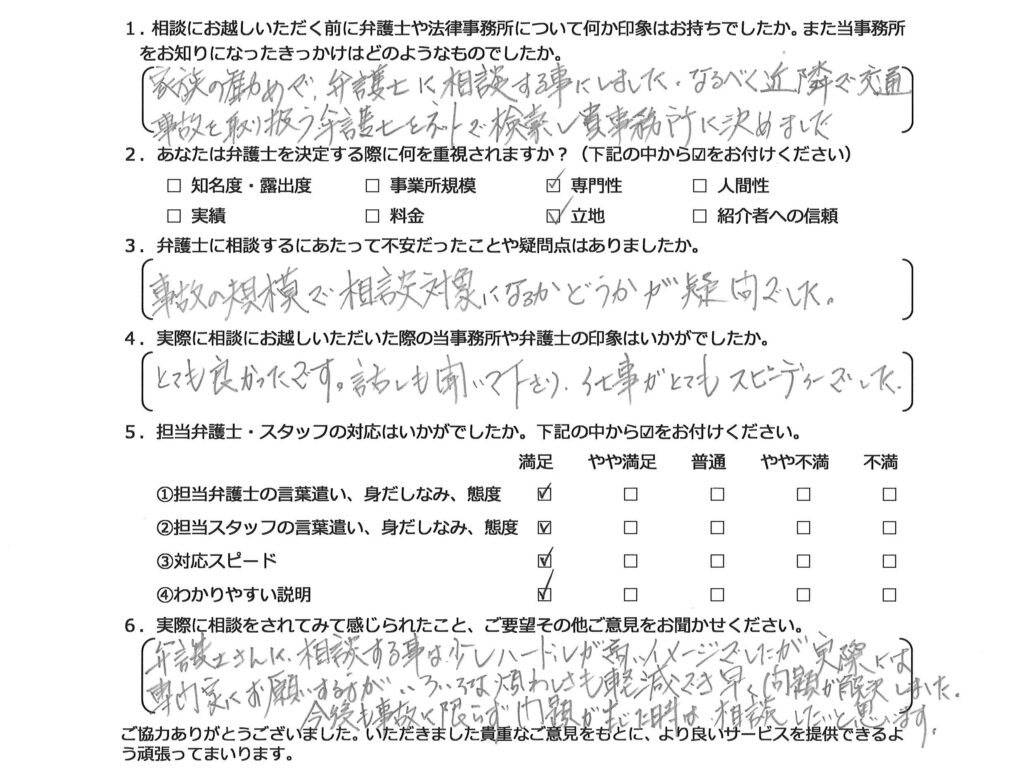 1．相談にお越しいただく前に弁護士や法律事務所について何か印象はお持ちでしたか。また当事務所
をお知りになったきっかけはどのようなものでしたか。
家族の勧めで、弁護士に相談する事にしました。なるべく近隣で交通
事故を取り扱う弁護士をネットで検索し貴事務所に決めました
2．あなたは弁護士を決定する際に何を重視されますか？（下記の中から☑をお付けください）
☐ 知名度・露出度 ☐ 事業所規模 ☑ 専門性 ☐ 人間性
☐ 実績 ☐ 料金 ☑ 立地 ☐ 紹介者への信頼
3．弁護士に相談するにあたって不安だったことや疑問点はありましたか。
事故の規模で相談対象になるかどうかが疑問でした。
4．実際に相談にお越しいただいた際の当事務所や弁護士の印象はいかがでしたか。
とても良かったです。話しも聞いて下さり、仕事がとてもスピーディーでした。
5．担当弁護士・スタッフの対応はいかがでしたか。下記の中から☑をお付けください。
満足 やや満足 普通 やや不満 不満
①担当弁護士の言葉遣い、身だしなみ、態度 ☑ ☐ ☐ ☐ ☐
②担当スタッフの言葉遣い、身だしなみ、態度 ☑ ☐ ☐ ☐ ☐
③対応スピード ☑ ☐ ☐ ☐ ☐
④わかりやすい説明 ☑ ☐ ☐ ☐ ☐
6．実際に相談をされてみて感じられたこと、ご要望その他ご意見をお聞かせください。
弁護士さんに、相談する事は少しハードルが高いイメージでしたが実際には
専門家にお願いする方がいろいろな煩わしさも軽減でき早く問題が解決しました。
今後も事故に限らず問題が生じた時は、相談したいと思います。
ご協力ありがとうございました。いただきました貴重なご意見をもとに、より良いサービスを提供できるよ
う頑張ってまいります。